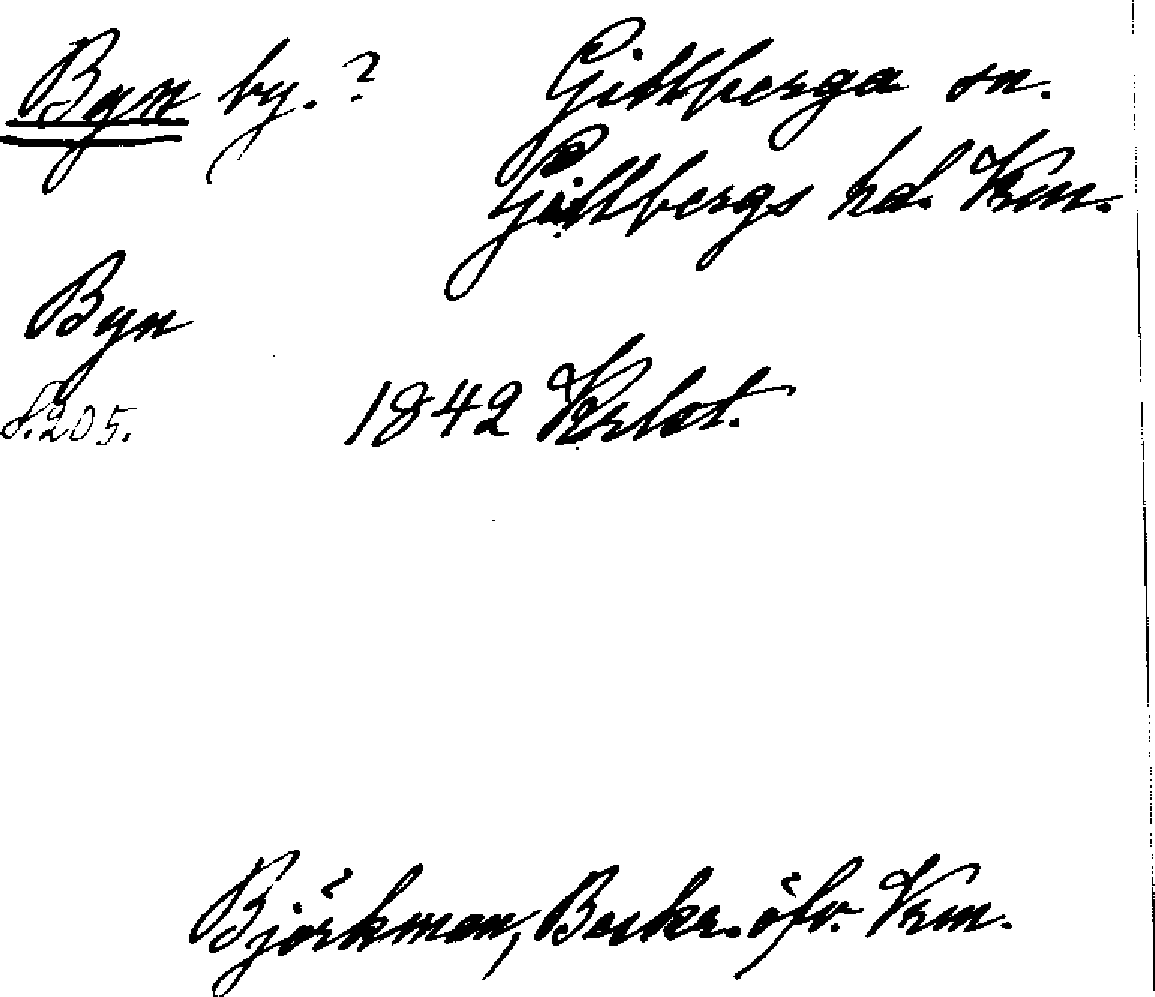 Byn by. ? Gillberga sn.
Gillbergs hd. Vrm.
Byn
S. 205. 1842
Björkman, Beskr. öfv. Vrm.